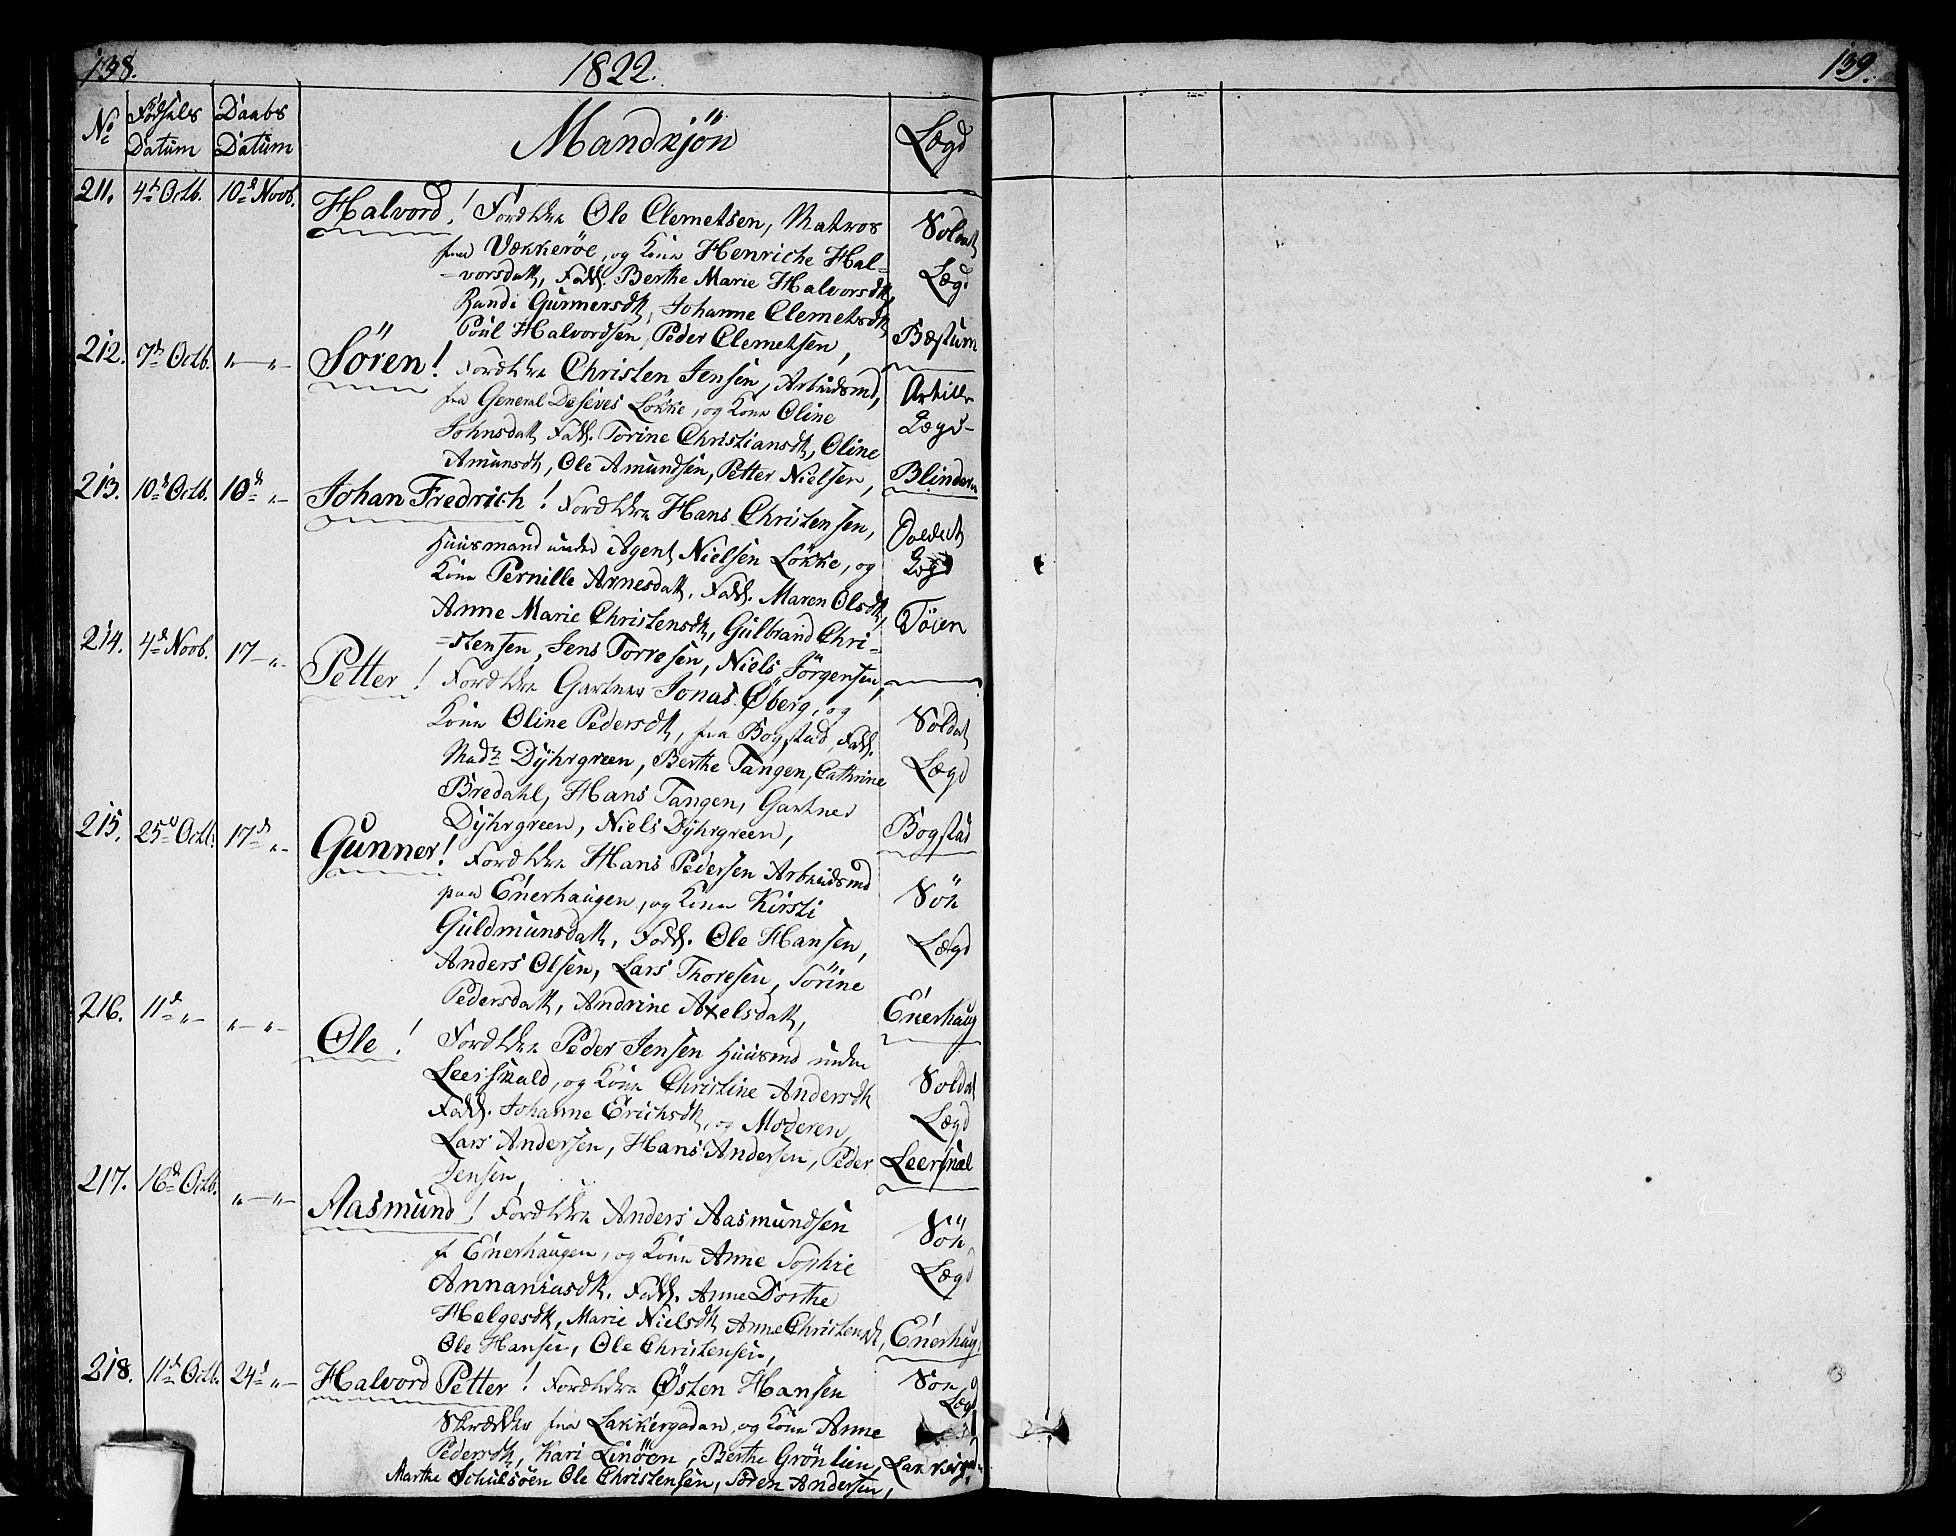 138.
1822.
139.
No
Fødsels Datum
Daabs Datum
Mandkjön
Lægd
211.
4de Octb.
10de Novb.
Halvord! Forældre Ole Clemetsen, Matros
fra Vækkeröe, og Kone Henriche Hal-
=vorsdatt, Fadd. Berthe Marie Halvorsdtt,
Randi Gunnersdtt, Johanne Clemetsdtt
Poul Halvordsen, Peder Clemetsen,
Soldat
Lægd
Bæstum
212.
7de Octb.
„ — „ —
Sören! Forældre Christen Jensen, Arbeidsmd,
fra General Deseves Lökke, og Kone Oline
Johnsdatt, Fadd. Torine Christiansdtt, Oline
Amunsdtt, Ole Amundsen, Petter Nielsen,
Artille
Lægd-
Blindern
213.
10de Octb.
10de „ —
Johan Fredrich! Forældre Hans Christensen,
Huusmand under Agent Nielsen Lökke, og
Kone Pernille Arnesdatt, Fadd. Maren Olsdtt,
Anne Marie Christensdtt, Gulbrand Chri-
=stensen, Jens Torresen, Niels Jörgensen,
Soldat
Lægd
Töien
214.
4de Novb.
17 — „ —
Petter! Forældre Gartner Jonas Øberg, og
Kone Oline Pedersdtt, fra Bogstad, Fadd.
Madm Dÿhrgreen, Berthe Tangen, Cathrine
Bredahl, Hans Tangen, Gartner
Dÿhrgreen, Niels Dÿhrgreen,
Soldat
Lægd
Bogstad
215.
25de Octb.
17de „ —
Gunner! Forældre Hans Pedersen Arbeidsmd
paa Enerhaugen, og Kone Kirsti
Guldmunsdatt, Fadd. Ole Hansen,
Anders Olsen, Lars Thoresen, Sörine
Pedersdatt, Andrine Axelsdatt,
Sön
Lægd
Enerhaug
216.
11de „ —
„ — „ —
Ole! Forældre Peder Jensen Huusmd under
Leerskald, og Kone Christine Andersdtt
Fadd. Johanne Erichsdtt, og Moderen,
Lars Andersen, Hans Andersen, Peder
Jensen,
Soldat
Lægd
Leerskal
217.
16de Octb.
„ — „ —
Aasmund! Forældre Anders Aasmundsen
f Enerhaugen, og Kone Anne Sophie
Annaniasdtt. Fadd. Anne Dorthe
Helgesdtt, Marie Nielsdtt, Anne Christensdtt,
Ole Hansen, Ole Christensen,
Sön
Lægd
Enerhaug
218.
11de Octb.
24de „ —
Halvord Petter! Forældre Østen Hansen
Skrædder fra Lakkergadan, og Kone Anne
Pedersdtt, Kari Linöen, Berthe Grönlien,
Marthe Schulsöen Ole Christensen, Sören Andersen,
Son
Lægd